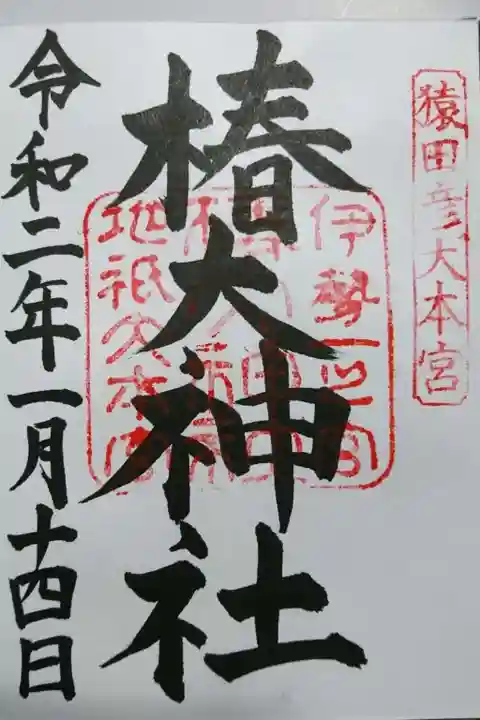 猿田彦大本宮
椿大神社
伊勢一之宮
椿大神社
地祇大本宮
令和二年一月十四日